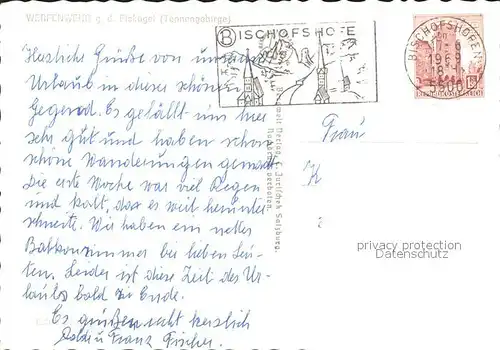 WERFENWENG g. d. Eiskogel (Tennengebirge)
BISCHOFSHOFE
BISCHOFSHOFEN
1969
5500
Herzliche Grüße von unserem
Urlaub in dieser schönen
Gegend. Es gefällt uns hier
sehr gut und haben schon
schöne Wanderungen gemacht.
Die erste Woche war viel Regen
und kalt, das es weit herunter-
schneite. Wir haben ein nettes
Balkonzimmer bei lieben Leu-
ten. Leider ist diese Zeit des Ur-
laubs bald zu Ende.
Es grüßen recht herzlich
u Franz Fischer.
Frau
K
privacy protection
Datenschutz